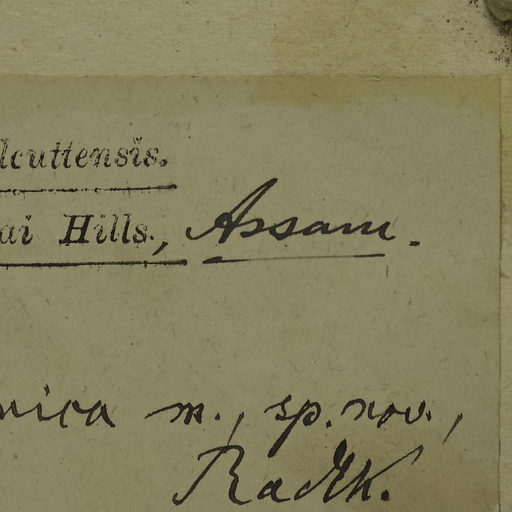 lcuttensis.
ai Hills., Assam.
nica m., sp. nov.,
Radlk.